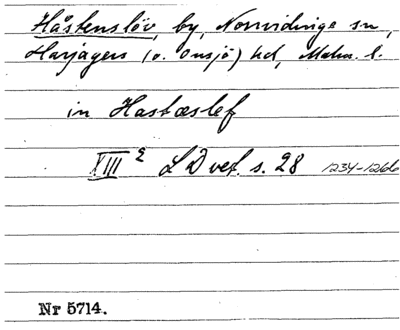 Håstenslöv, by, Norrvidinge sn,
Harjagers (o. Onsjö) hd, Malm. l.
in Hastæslef
XIII 2 LD vet. s. 28 1234-1266
Nr 5714.